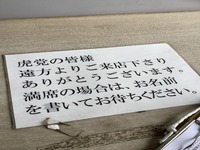 虎党の皆様
遠方よりご来店下さり
ありがとうございます。
満席の場合は、お名前
を書いてお待ちください。